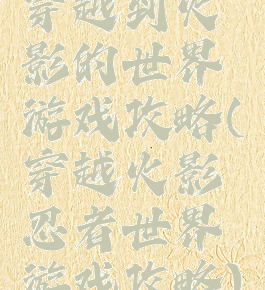 穿越到火
影的世界
游戏攻略(
穿越火影
忍者世界
游戏攻略)